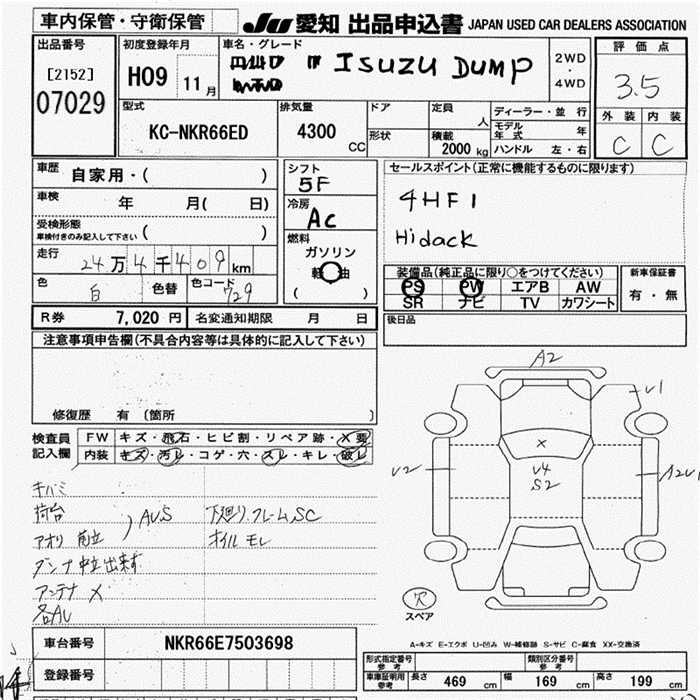 車内保管・守衛保管
JU 愛知 出品申込書 JAPAN USED CAR DEALERS ASSOCIATION
出品番号
[2152]
07029
初度登録年月
H09 11月
車名・グレード
ISUZU DUMP
2WD
・
4WD
評価点
3.5
外装 内装
C C
型式
KC-NKR66ED
排気量
4300
CC
ドア
形状
定員
人
積載
2000 kg
ディーラー・並行
モデル年式 年
ハンドル 左・右
車歴
自家用・( )
車検
年 月( 日)
受検形態
車検付きのみ記入して下さい ( )
走行
24万4千409km
色
白
色替
色コード
729
シフト
5F
冷房
AC
燃料
ガソリン
軽油
( )
セールスポイント(正常に機能するものに限ります)
4HF1
Hidack
装備品(純正品に限り○をつけてください)
PS PW エアB AW
SR ナビ TV カワシート
新車保証書
有・無
R券 7,020円 名変通知期限 月 日
後日品
注意事項申告欄(不具合内容等は具体的に記入して下さい)
修復歴 有 (箇所 )
検査員
記入欄
FW キズ・飛石・ヒビ割・リペア跡・X要
内装 キズ・汚レ・コゲ・穴・スレ・キレ・破レ
キバミ
荷台
AUS
下廻り、フレームSC
オイルモレ
ダンプ中立出来ず
アンテナ X
各AU
A2
V1
V2
X
V4
S2
穴
スペア
A-キズ E-エクボ U-凹み W-補修跡 S-サビ C-腐食 XX-交換済
車台番号 NKR66E7503698
登録番号
形式指定番号
参考
類別区分番号
参考
車庫証明用
参考
長さ 469 cm 幅 169 cm 高さ 199 cm